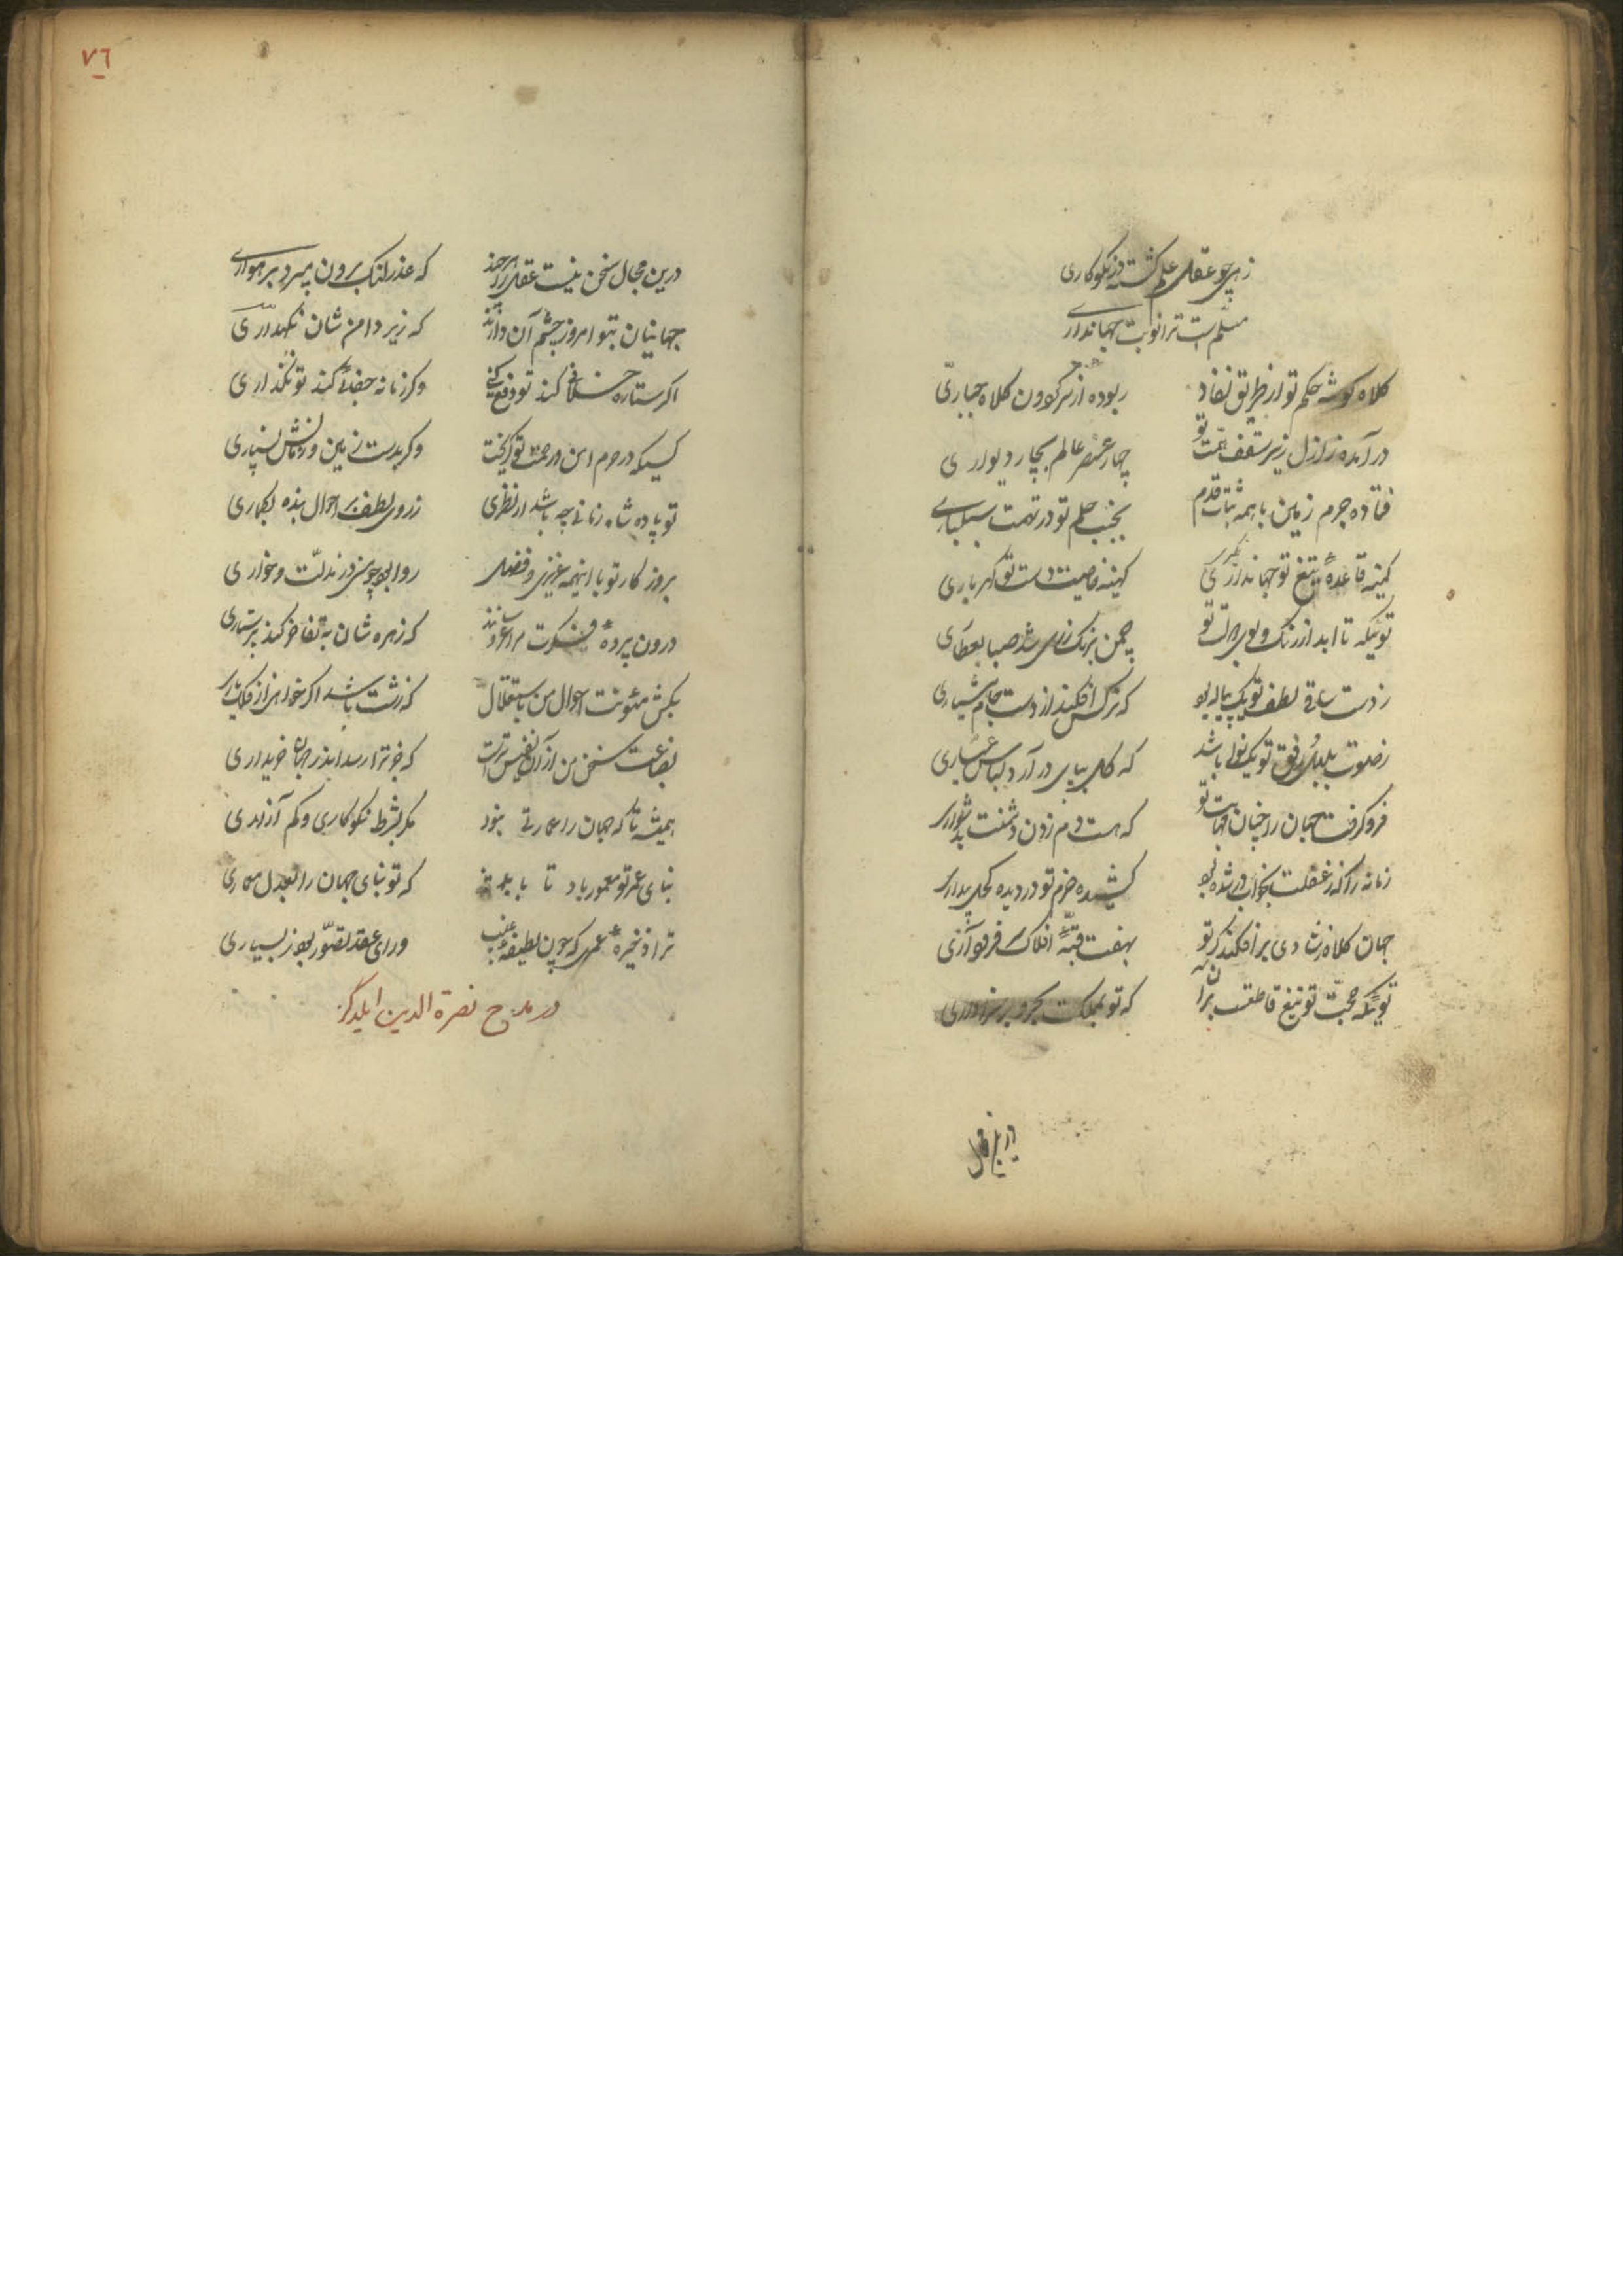 زهی چو عقل علم گشته در نکوکاری
مسلم است ترا نوبت جهانداری
کلاه گوشه حکم تو از طریق نفاذ ربوده از سر گردون کلاه جباری
در آمده ز ازل زیر سقف همت تو چهار عنصر عالم بچار دیواری
فتاده جرم زمین با همه ثبات قدم بجنب حلم تو در تهمت سبکباری
کمینه قاعدهٔ تیغ تو جهانگیری کهینه خاصیت دست تو گهرباری
توئیکه تا ابد از رنگ و بوی دولت تو چمن برنگرزی شد صبا بعطاری
ز دست ساقی لطف تو یک پیاله بود که نرگس افکند از دست جام هشیاری
ز صوت بلبل رفق تو یک نوا باشد که گل بپای در آرد لباس
فرو گرفت جهان را چنان مهابت تو که هست دم زدن دشمنت بدشواری
زمانه را که ز غفلت بخواب در شده بود کشیده حزم تو در دیده کحل بیداری
جهان کلاه ز شادی بر افکند گر تو بهفت قبهٔ افلاک سر فرود آری
توئیکه حجت تو تیغ قاطعست بر آن که تو بمملکت بحر و بر سزاواری
در این مجال
٧٦
درین مجال سخن نیست عقل را هر چند که عذر لنگ برون میبرد برهواری
جهانیان بتو امروز چشم آن دارند که زیر دامن شان نگهداری
اگر ستاره کند تو دفع کنی وگر زمانه جفائی کند تو نگذاری
کسیکه در حرم امن و رحمت تو گریخت وگر بدست زمین و زمانش نسپاری
تو پادشاه زمانی چه باشد ار نظری ز روی لطف بر احوال بنده بگماری
بروزگار تو با اینهمه عزیزی فضل روا بود چو منی در مذلت و خواری
درون پردهٔ فکرت مرا عروسانند که زهره شان بتفاخر کند پرستاری
بکش مئونت احوال من باستقلال که زشت باشد اگر خواهم از فلک یاری
بضاعت سخن من از آن نفیس ترست که جز ترا رسد اندر جهان خریداری
همیشه تا که جهان را عمارتی نبود مگر بشرط نکوکاری و کم آزاری
بنای عمر تو معمور باد تا بابد که تو بنای جهان را بعدل معماری
ترا ذخیرهٔ عمری که چون لطیفهٔ غیب ورای عقد تصور بود ز بسیاری
در مدح نصرة الدین ایلدگز